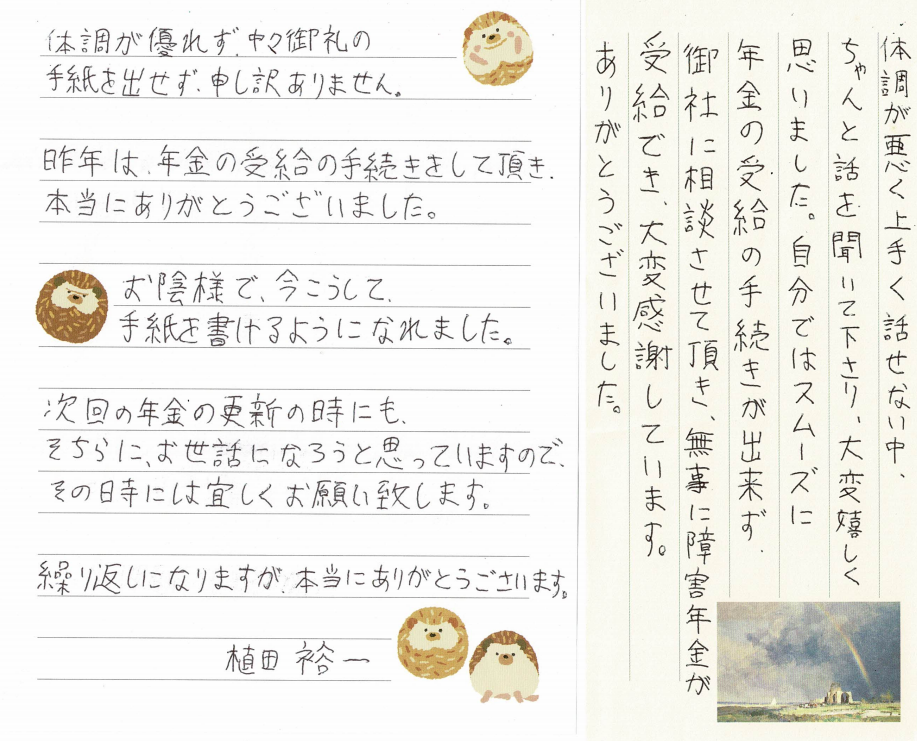 体調が優れず、中々御礼の
手紙を出せず、申し訳ありません。
昨年は、年金の受給の手続ききをして頂き、
本当にありがとうございました。
お陰様で、今こうして、
手紙を書けるようになれました。
次回の年金の更新の時にも、
そちらに、お世話になろうと思っていますので、
その時には宜しくお願い致します。
繰り返しになりますが、本当にありがとうございます。
植田 裕一
体調が悪く上手く話せない中、
ちゃんと話を聞いて下さり、大変嬉しく
思いました。自分ではスムーズに
年金の受給の手続きが出来ず、
御社に相談させて頂き、無事に障害年金が
受給でき、大変感謝しています。
ありがとうございました。